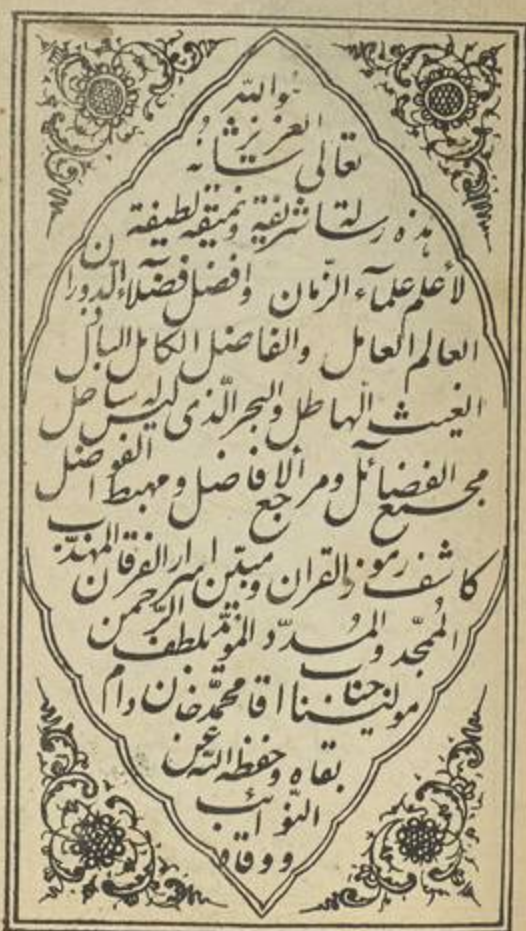 هو الله
العزيز
تعالى شانه
هذه رسالة شريفة ونميقه لطيفة
لأعلم علمآء الزّمان وافضل فضلآء الدّوران
العالم العامل والفاضل الكامل الباذل
الغيث الهاطل والبحر الّذى ليس له ساحل
مجمع الفضائل ومرجع الافاضل ومهبط الفواضل
كاشف رموز القران ومبيّن اسرار الفرقان المهذّب
المُمجّد والمسدّد المؤيّد بلطف الرّحمن
جناب مولينا اقا محمّد خان دام
بقاه وحفظه الله عن
النّوائب
ووقاه